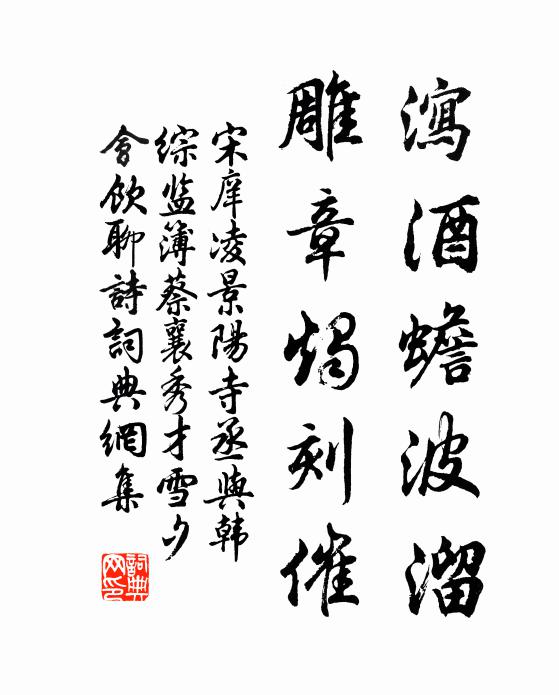 瀉酒蟾波溜
雕章燭刻催
宋庠凌景陽寺丞與韩
综监簿蔡襄秀才雪夕
會飲聊詩詞典網集
詞典
网印